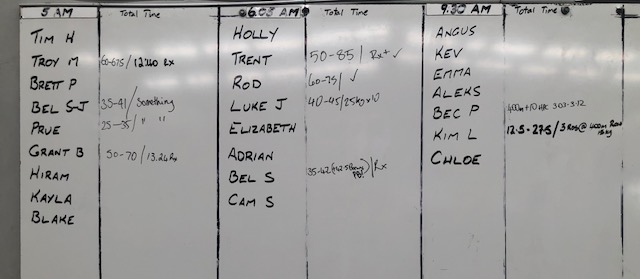 5 AM Total Time
TIM H
TROY M 60-67.5/12.40 Rx
BRETT P
BEL S-J 35-41/Something
PRUE 25-35/ " "
GRANT B 50-70/13.26 Rx
HIRAM
KAYLA
BLAKE
6.03 AM Total Time
HOLLY
TRENT 50-85/Rx+ ✓
ROD 60-75/ ✓
LUKE J 40-45/25kg x10
ELIZABETH
ADRIAN
BEL S 35-42 PB! Rx
CAM S
9.30 AM Total Time
ANGUS
KEV
EMMA
ALEKS
BEC P 400m
KIM L 12.5-27.5/3 Rds@ 400m Row
CHLOE